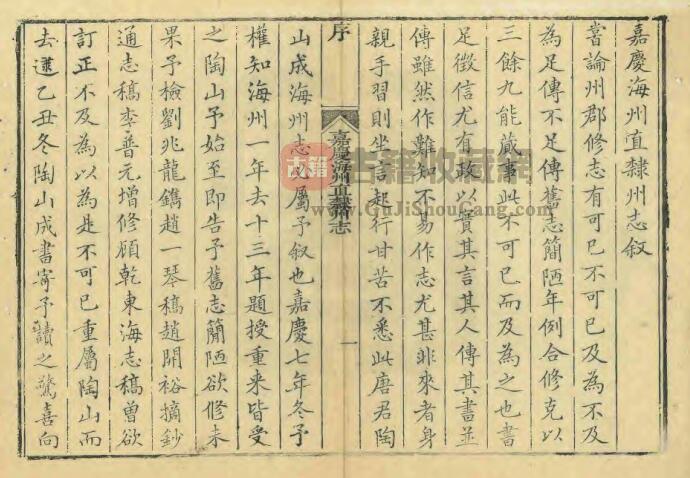 嘉慶海州直隸州志叙
嘗論州郡修志有可已不可已及為不及
為足傳不足傳舊志簡陋年例合修克以
三餘九能蕆事此不可已而及為之也書
足徵信尤有政以實其言其人傳其書並
傳雖然作難知不易作志尤甚非來者身
親手習則坐言起行甘苦不悉此唐君陶
序
嘉慶海州直隸州志
一
山成海州志 屬予叙也嘉慶七年冬予
權知海州一年去十三年題授重來皆受
之陶山予始至即告予舊志簡陋欲修未
果予檢劉兆龍鐫趙一琴稿趙開裕摘鈔
通志稿李普元增修顧乾東海志稿曾欲
訂正不及為以為是不可已重屬陶山而
去逮乙丑冬陶山成書寄予讀之驚喜向
古籍
古籍收藏网
www.GuJiShouCang.com